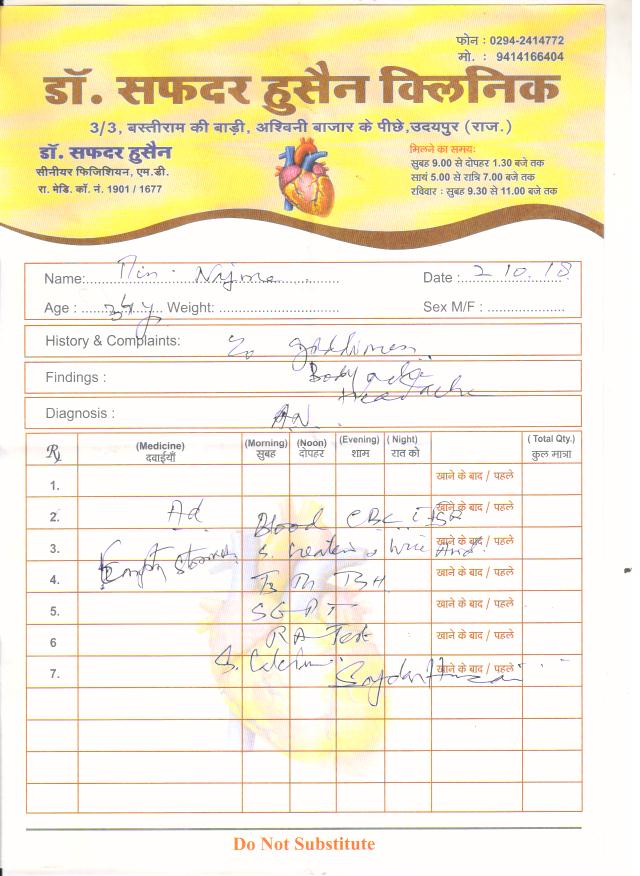 फोन : 0294-2414772
मो. : 9414166404
डॉ. सफदर हुसैन क्लिनिक
3/3, बस्तीराम की बाड़ी, अश्विनी बाजार के पीछे,उदयपुर (राज.)
डॉ. सफदर हुसैन
सीनीयर फिजिशियन, एम.डी.
रा. मेडि. कॉ. नं. 1901 / 1677
मिलने का समय:
सुबह 9.00 से दोपहर 1.30 बजे तक
सायं 5.00 से रात्रि 7.00 बजे तक
रविवार : सुबह 9.30 से 11.00 बजे तक
Name: Najma Date : 2 10. 18
Age : 34y Weight: Sex M/F :
History & Complaints:
Findings : Body ache
Headache
Diagnosis :
Rx (Medicine) (Morning) (Noon) (Evening) ( Night) ( Total Qty.)
दवाईयाँ सुबह दोपहर शाम रात को कुल मात्रा
1. खाने के बाद / पहले
2. Ad Blood CBC ESR खाने के बाद / पहले
3. Empty Stomach S. Creatinine Uric Acid खाने के बाद / पहले
4. खाने के बाद / पहले
5. SGPT खाने के बाद / पहले
6 RA Test खाने के बाद / पहले
7. S. Calcium खाने के बाद / पहले
Safdar Hussain
Do Not Substitute